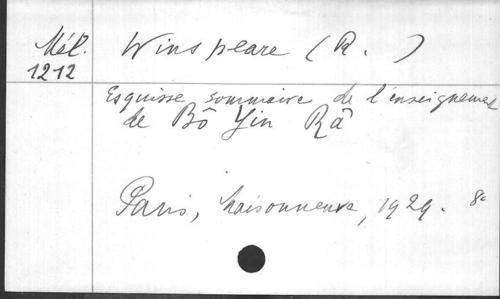 Mél.
1212
Winspeare (R. )
Esquisse sommaire de l'enseignement
de Bô Yin Râ
Paris, Maisonneuve, 1929. 8º